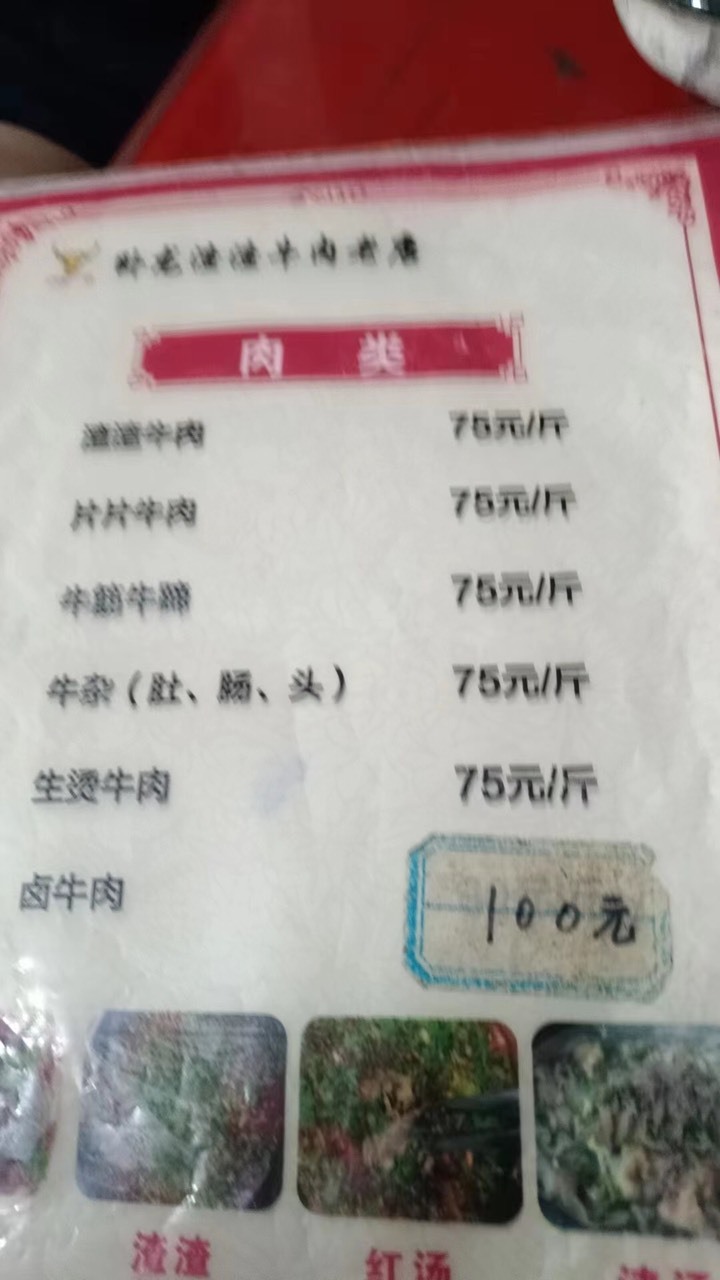 卧龙渣渣牛肉老店
肉类
渣渣牛肉 75元/斤
片片牛肉 75元/斤
牛筋牛蹄 75元/斤
牛杂（肚、肠、头） 75元/斤
生烫牛肉 75元/斤
卤牛肉 100元
渣渣 红汤 清汤